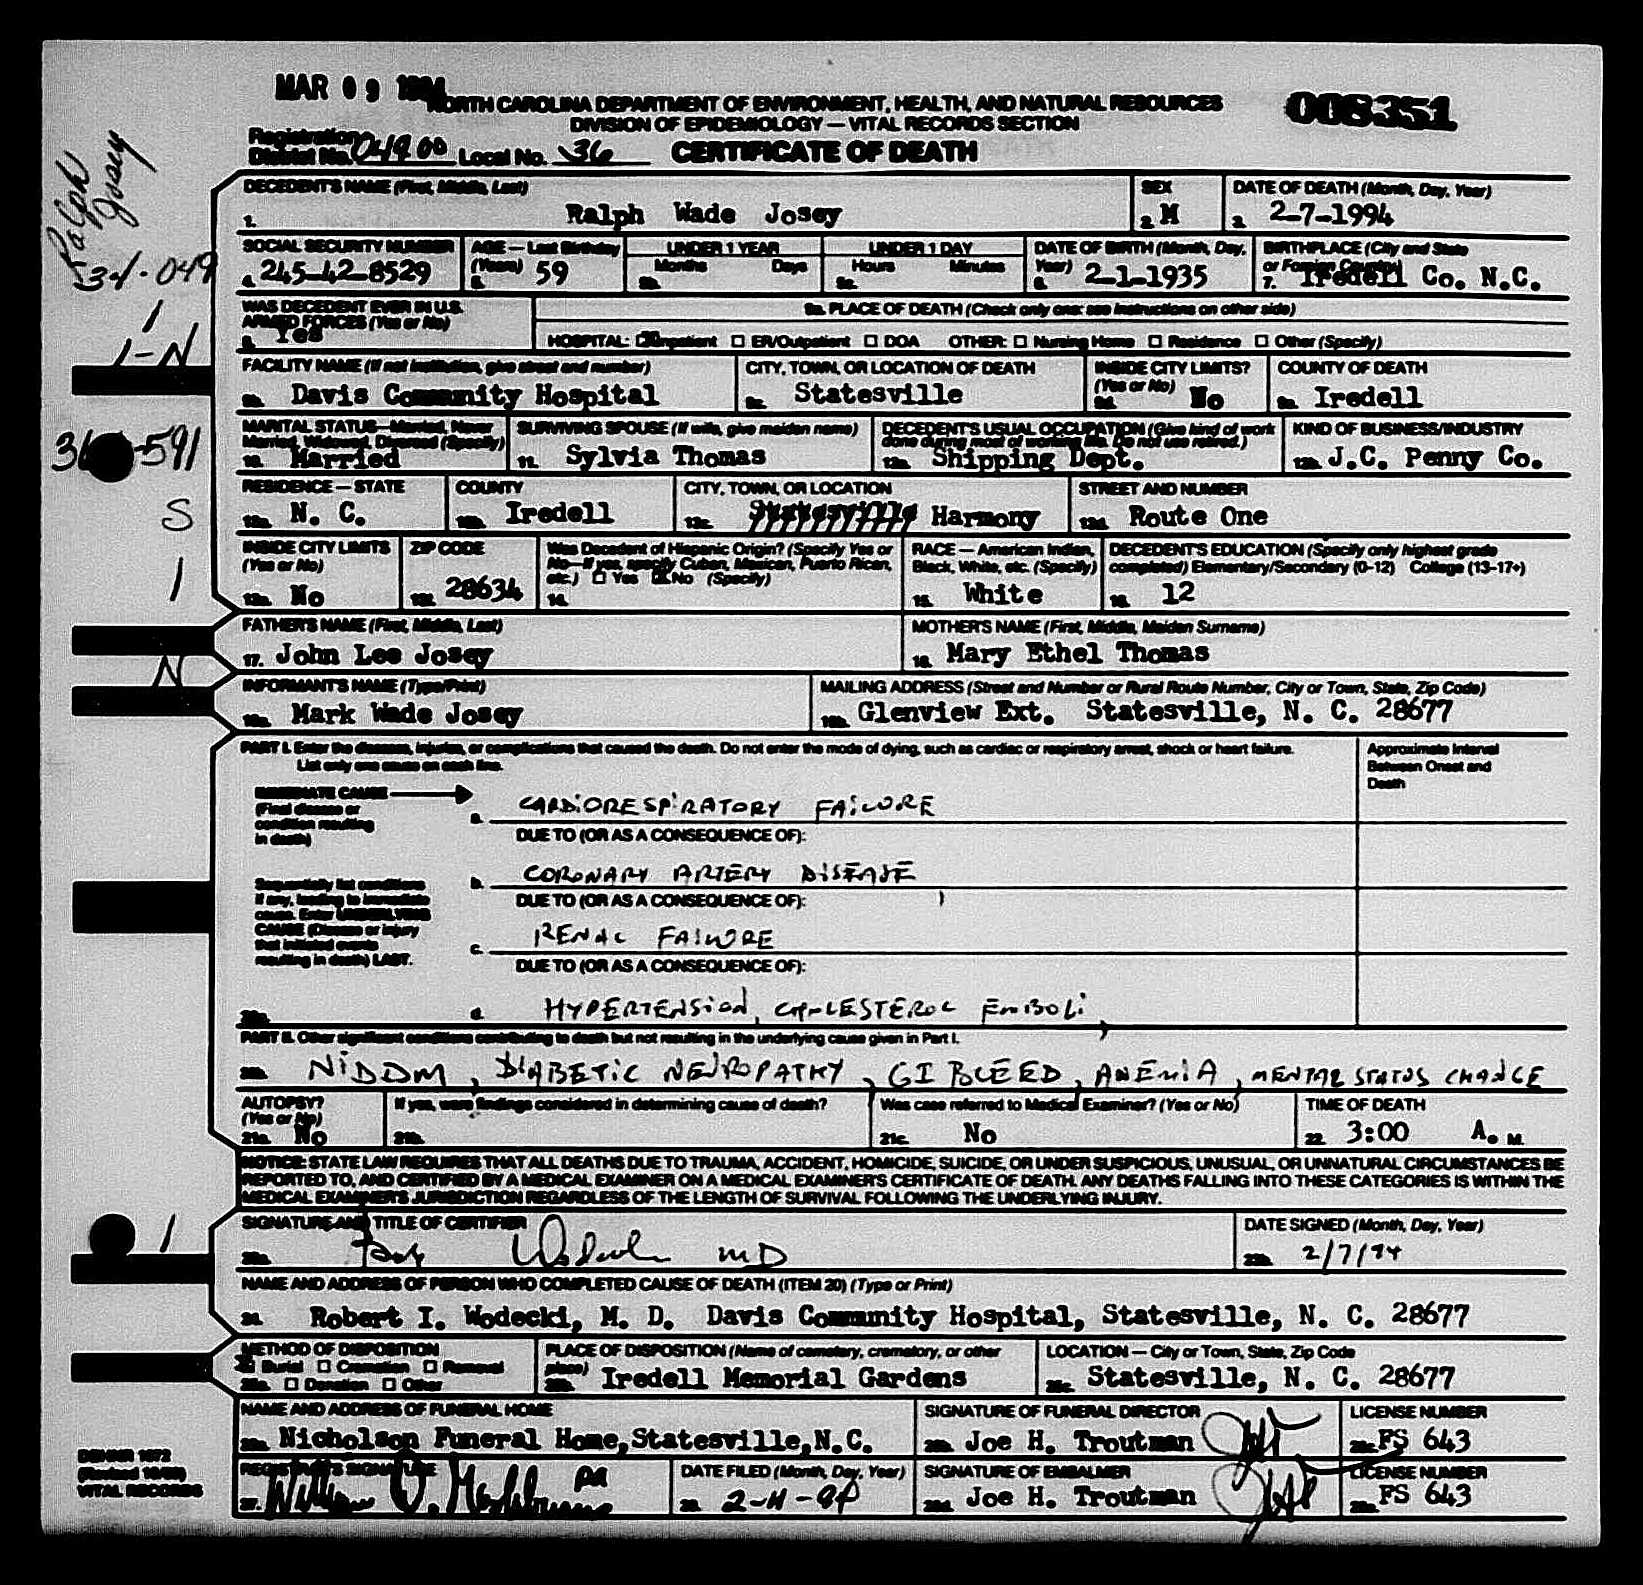 MAR 09 1994
NORTH CAROLINA DEPARTMENT OF ENVIRONMENT, HEALTH, AND NATURAL RESOURCES
008351
DIVISION OF EPIDEMIOLOGY — VITAL RECORDS SECTION
Registration District No. 04900 Local No. 36 CERTIFICATE OF DEATH
Ralph Josey
34-049
1
1-N
591
S
1
N
1
DECEDENT'S NAME (First, Middle, Last) SEX DATE OF DEATH (Month, Day, Year)
1. Ralph Wade Josey 2. M 3. 2-7-1994
SOCIAL SECURITY NUMBER AGE — Last Birthday (Years) UNDER 1 YEAR UNDER 1 DAY DATE OF BIRTH (Month, Day, Year) BIRTHPLACE (City and State or Foreign Country)
Months Days Hours Minutes
4. 245-42-8529 59 2-1-1935 7. Iredell Co. N.C.
WAS DECEDENT EVER IN U.S. ARMED FORCES (Yes or No) 9a. PLACE OF DEATH (Check only one: see instructions on other side)
Yes HOSPITAL: ☒ Inpatient ☐ ER/Outpatient ☐ DOA OTHER: ☐ Nursing Home ☐ Residence ☐ Other (Specify)
FACILITY NAME (If not institution, give street and number) CITY, TOWN, OR LOCATION OF DEATH INSIDE CITY LIMITS? (Yes or No) COUNTY OF DEATH
9b. Davis Community Hospital 9c. Statesville 9d. No 9e. Iredell
MARITAL STATUS—Married, Never Married, Widowed, Divorced (Specify) SURVIVING SPOUSE (If wife, give maiden name) DECEDENT'S USUAL OCCUPATION (Give kind of work done during most of working life. Do not use retired.) KIND OF BUSINESS/INDUSTRY
10. Married 11. Sylvia Thomas 12a. Shipping Dept. 12b. J.C. Penny Co.
RESIDENCE — STATE COUNTY CITY, TOWN, OR LOCATION STREET AND NUMBER
13a. N. C. 13b. Iredell 13c. Statesville Harmony 13d. Route One
INSIDE CITY LIMITS (Yes or No) ZIP CODE Was Decedent of Hispanic Origin? (Specify Yes or No—If yes, specify Cuban, Mexican, Puerto Rican, etc.) ☐ Yes ☒ No (Specify) RACE — American Indian, Black, White, etc. (Specify) DECEDENT'S EDUCATION (Specify only highest grade completed) Elementary/Secondary (0-12) College (13-17+)
13e. No 13f. 28634 14. 15. White 16. 12
FATHER'S NAME (First, Middle, Last) MOTHER'S NAME (First, Middle, Maiden Surname)
17. John Lee Josey 18. Mary Ethel Thomas
INFORMANT'S NAME (Type/Print) MAILING ADDRESS (Street and Number or Rural Route Number, City or Town, State, Zip Code)
19a. Mark Wade Josey 19b. Glenview Ext. Statesville, N. C. 28677
PART I. Enter the diseases, injuries, or complications that caused the death. Do not enter the mode of dying, such as cardiac or respiratory arrest, shock or heart failure.
List only one cause on each line.
Approximate Interval Between Onset and Death
IMMEDIATE CAUSE (Final disease or condition resulting in death)
a. CARDIORESPIRATORY FAILURE
DUE TO (OR AS A CONSEQUENCE OF):
Sequentially list conditions if any, leading to immediate cause. Enter UNDERLYING CAUSE (Disease or injury that initiated events resulting in death) LAST.
b. CORONARY ARTERY DISEASE
DUE TO (OR AS A CONSEQUENCE OF):
c. RENAL FAILURE
DUE TO (OR AS A CONSEQUENCE OF):
20a. d. HYPERTENSION, CHOLESTEROL EMBOLI
PART II. Other significant conditions contributing to death but not resulting in the underlying cause given in Part I.
20b. NIDDM, DIABETIC NEUROPATHY, GI BLEED, ANEMIA, MENTAL STATUS CHANGE
AUTOPSY? (Yes or No) If yes, were findings considered in determining cause of death? Was case referred to Medical Examiner? (Yes or No) TIME OF DEATH
21a. No 21b. 21c. No 22. 3:00 A. M.
NOTICE: STATE LAW REQUIRES THAT ALL DEATHS DUE TO TRAUMA, ACCIDENT, HOMICIDE, SUICIDE, OR UNDER SUSPICIOUS, UNUSUAL, OR UNNATURAL CIRCUMSTANCES BE
REPORTED TO, AND CERTIFIED BY A MEDICAL EXAMINER ON A MEDICAL EXAMINER'S CERTIFICATE OF DEATH. ANY DEATHS FALLING INTO THESE CATEGORIES IS WITHIN THE
MEDICAL EXAMINER'S JURISDICTION REGARDLESS OF THE LENGTH OF SURVIVAL FOLLOWING THE UNDERLYING INJURY.
SIGNATURE AND TITLE OF CERTIFIER DATE SIGNED (Month, Day, Year)
23a. MD 23b. 2/7/94
NAME AND ADDRESS OF PERSON WHO COMPLETED CAUSE OF DEATH (ITEM 20) (Type or Print)
24. Robert I. Wodecki, M. D. Davis Community Hospital, Statesville, N. C. 28677
METHOD OF DISPOSITION PLACE OF DISPOSITION (Name of cemetery, crematory, or other place) LOCATION — City or Town, State, Zip Code
☒ Burial ☐ Cremation ☐ Removal
25a. ☐ Donation ☐ Other 25b. Iredell Memorial Gardens 25c. Statesville, N. C. 28677
NAME AND ADDRESS OF FUNERAL HOME SIGNATURE OF FUNERAL DIRECTOR LICENSE NUMBER
26a. Nicholson Funeral Home, Statesville, N.C. 26b. Joe H. Troutman JHT 26c. FS 643
REGISTRAR'S SIGNATURE DATE FILED (Month, Day, Year) SIGNATURE OF EMBALMER LICENSE NUMBER
27. William 28. 2-11-94 26d. Joe H. Troutman JHT 26e. FS 643
DEHNR 1872
VITAL RECORDS